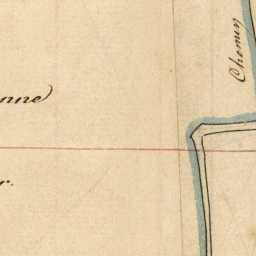 Chemin
nne)
r.